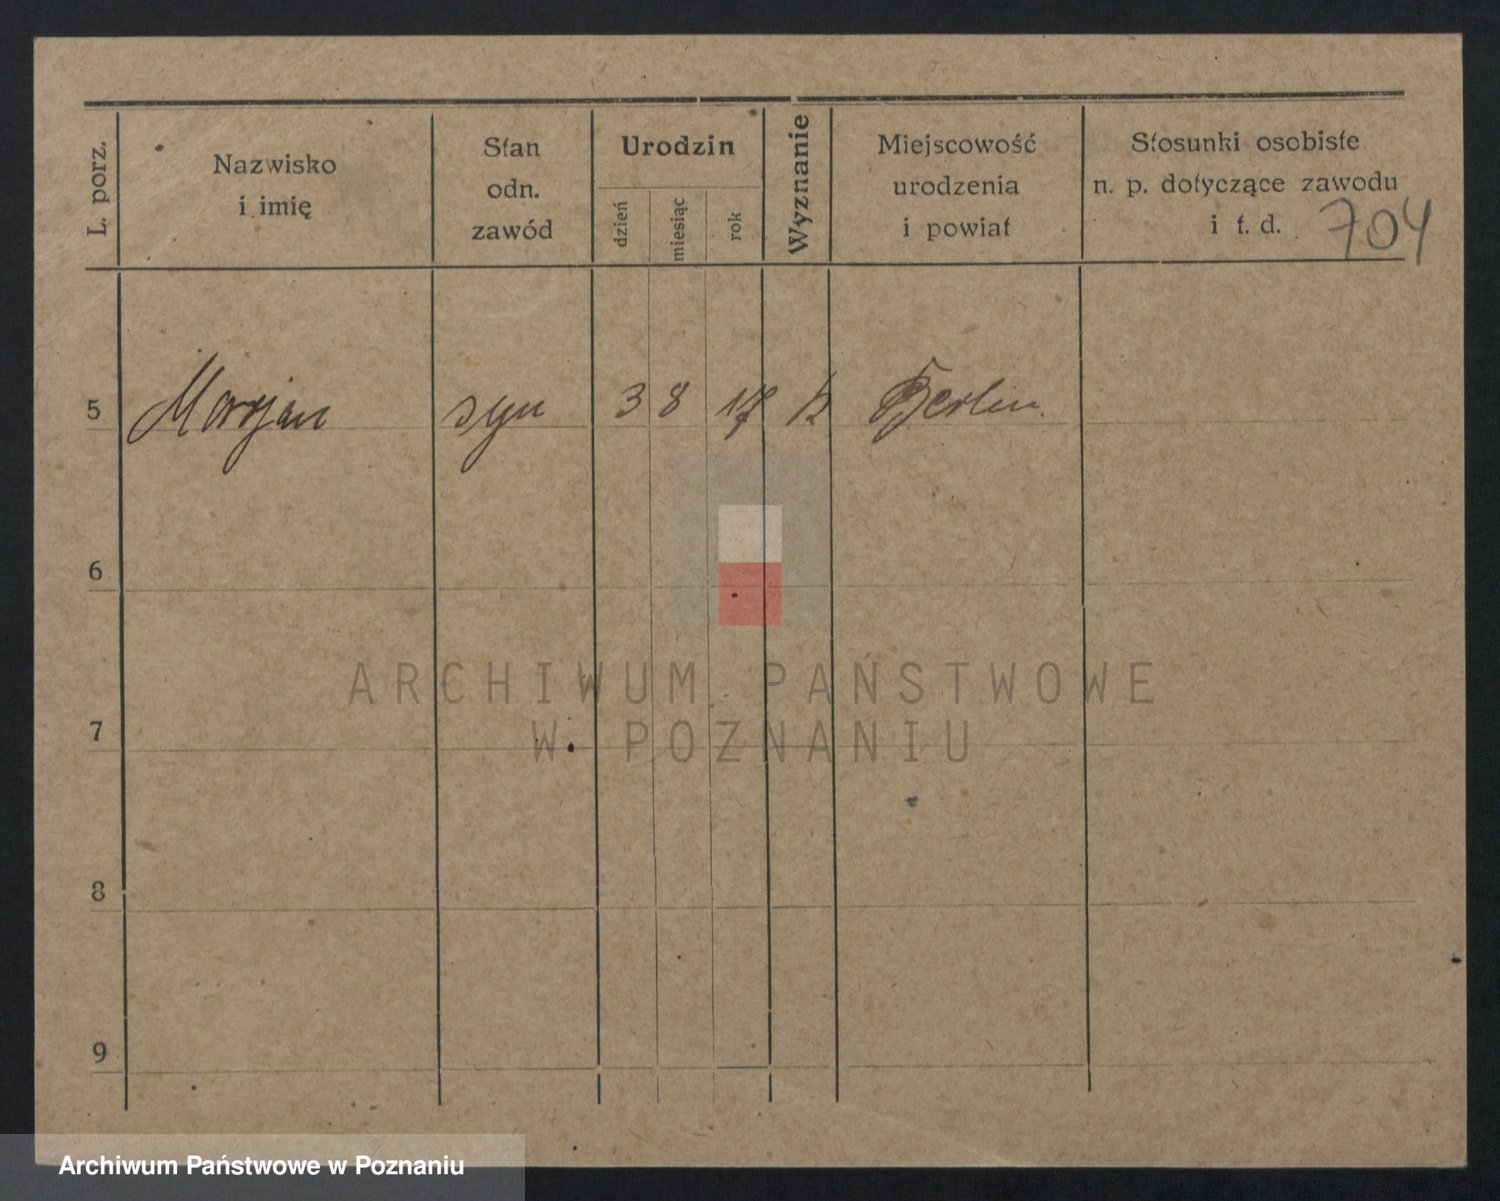 L. porz.
Nazwisko
i imię
Stan
odn.
zawód
Urodzin
dzień
miesiąc
rok
Wyznanie
Miejscowość
urodzenia
i powiat
Stosunki osobiste
n. p. dotyczące zawodu
i t. d.
704
5 Maryan syn 3 8 17 k Berlin.
6
7
8
9
ARCHIWUM PAŃSTWOWE
W POZNANIU
Archiwum Państwowe w Poznaniu